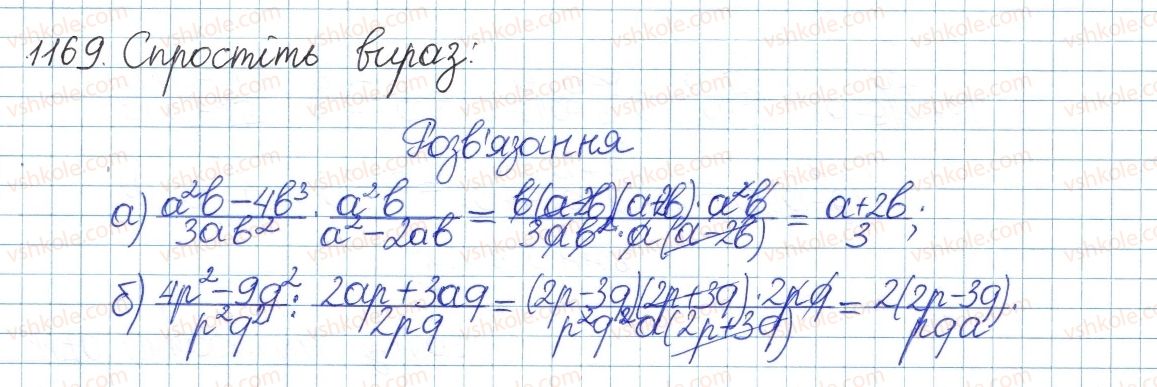 1169. Спростіть вираз:
Розв'язання
а) (a²b − 4b³)/(3ab²) · (a²b)/(a² − 2ab) = (b(a−2b)(a+2b) · a²b)/(3ab² · a(a−2b)) = (a+2b)/3;
б) (4p² − 9q²)/(p²q²) : (2ap + 3aq)/(2pq) = ((2p−3q)(2p+3q) · 2pq)/(p²q² a(2p+3q)) = (2(2p−3q))/(pqa).